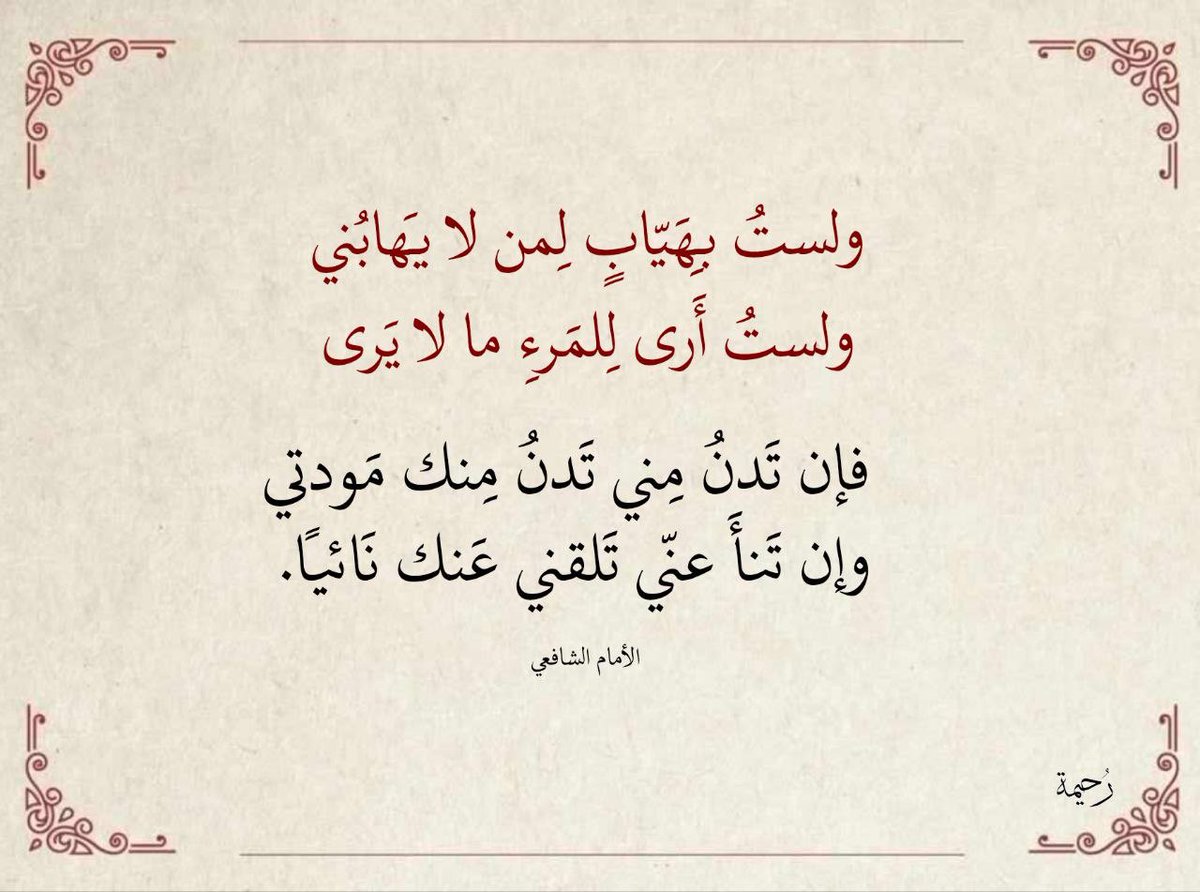 ولستُ بِهَيّابٍ لِمن لا يَهابُني
ولستُ أَرى لِلمَرءِ ما لا يَرى
فإن تَدنُ مِني تَدنُ مِنك مَودتي
وإن تَنأَ عنّي تَلقني عَنك نَائياً.
الأمام الشافعي
رُحيمة